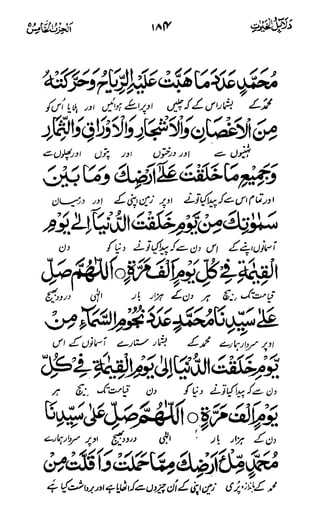 دلائل الخیرات ۱۸۴ الحزب الخامس
مُحَمَّدٍ عَدَدَ مَا هَبَّتْ عَلَيْهِ الرِّيَاحُ وَحَرَّكَتْهُ
محمد کے بشمار اس کے کہ چلیں اوپر اسکے ہوائیں اور ہلایا اُس کو
مِنَ الْاَغْصَانِ وَالْاَشْجَارِ وَالْاَوْرَاقِ وَالثِّمَارِ
ٹہنیوں سے اور درختوں اور پتوں اور پھلوں سے
وَجَمِيْعِ مَا خَلَقْتَ عَلٰى اَرْضِكَ وَمَا بَيْنَ
اور تمام اس سے کہ پیدا کیا تونے اوپر زمین اپنی کے اور درمیان
سَمٰوٰتِكَ مِنْ يَّوْمِ خَلَقْتَ الدُّنْيَا اِلٰى يَوْمِ
آسمانوں اپنے کے اس دن سے کہ پیدا کیا تونے دنیا کو دن
الْقِيٰمَةِ فِيْ كُلِّ يَوْمٍ اَلْفَ مَرَّةٍ ○ اَللّٰهُمَّ صَلِّ
قیامت تک بیچ ہر دن کے ہزار بار الٰہی درود بھیج
عَلٰى سَيِّدِنَا مُحَمَّدٍ عَدَدَ نُجُوْمِ السَّمَآءِ مِنْ
اوپر سردار ہمارے محمد کے بشمار ستارے آسمانوں کے اس
يَّوْمِ خَلَقْتَ الدُّنْيَا اِلٰى يَوْمِ الْقِيٰمَةِ فِيْ كُلِّ
دن سے کہ پیدا کیا تونے دنیا کو دن قیامت تک بیچ ہر
يَوْمٍ اَلْفَ مَرَّةٍ ○ اَللّٰهُمَّ صَلِّ عَلٰى سَيِّدِنَا
دن کے ہزار بار الٰہی درود بھیج اوپر سردار ہمارے
مُحَمَّدٍ مِّلْءَ اَرْضِكَ مِمَّا حَمَلَتْ وَاَقَلَّتْ مِنْ
محمد کے پُری زمین اپنی کے اُن چیزوں سے کہ اٹھایا ہے اور برداشت کیا ہے